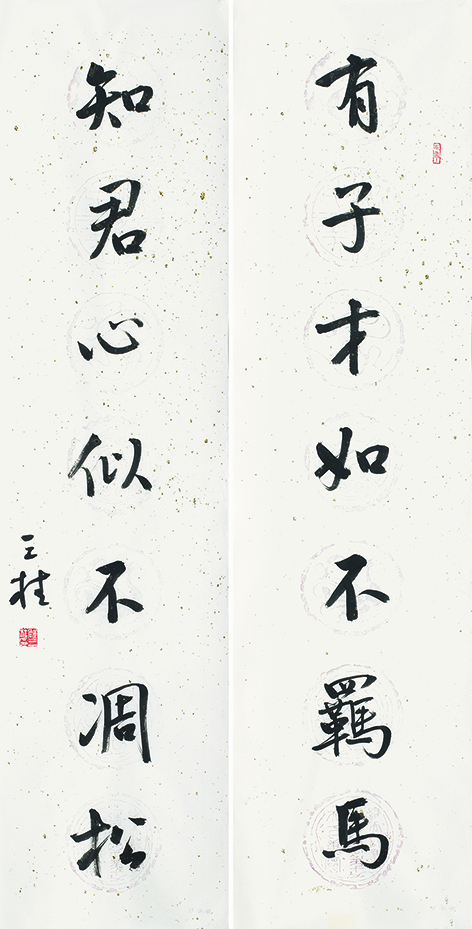 有子才如不羈馬
知君心似不凋松
三桂